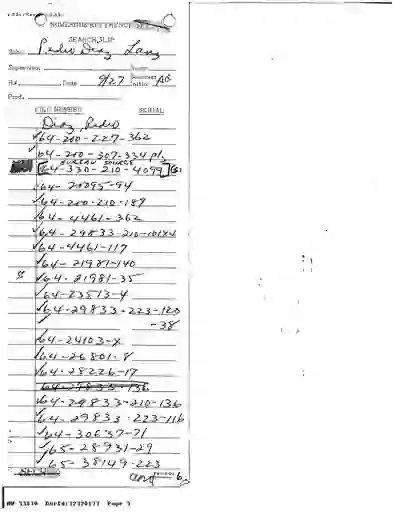 NUMEROUS REFERENCE
SEARCH SLIP
Subj: Pedro Diaz Lanz
Supervisor Room
R# Date 9/27 Searcher Initial
Prod.
FILE NUMBER SERIAL
Diaz, Pedro
✓64-200-227-362
✓64-200-307-334 p1.
BUREAU SOURCE
64-330-210-4099
✓64-20095-94
✓64-200-210-189
✓64-4461-362
✓64-29833-210-101X4
✓64-4461-117
✓64-21981-140
✓64-21981-35
✓64-23513-4
✓64-29833-223-120
✓ -38
✓64-24103-X
✓64-26801-8
✓64-28226-17
64-29833-136
✓64-29833-210-136
✓64-29833-223-116
✓64-30637-71
✓65-28931-29
✓65-38149-223
DocId:32320177 Page 3